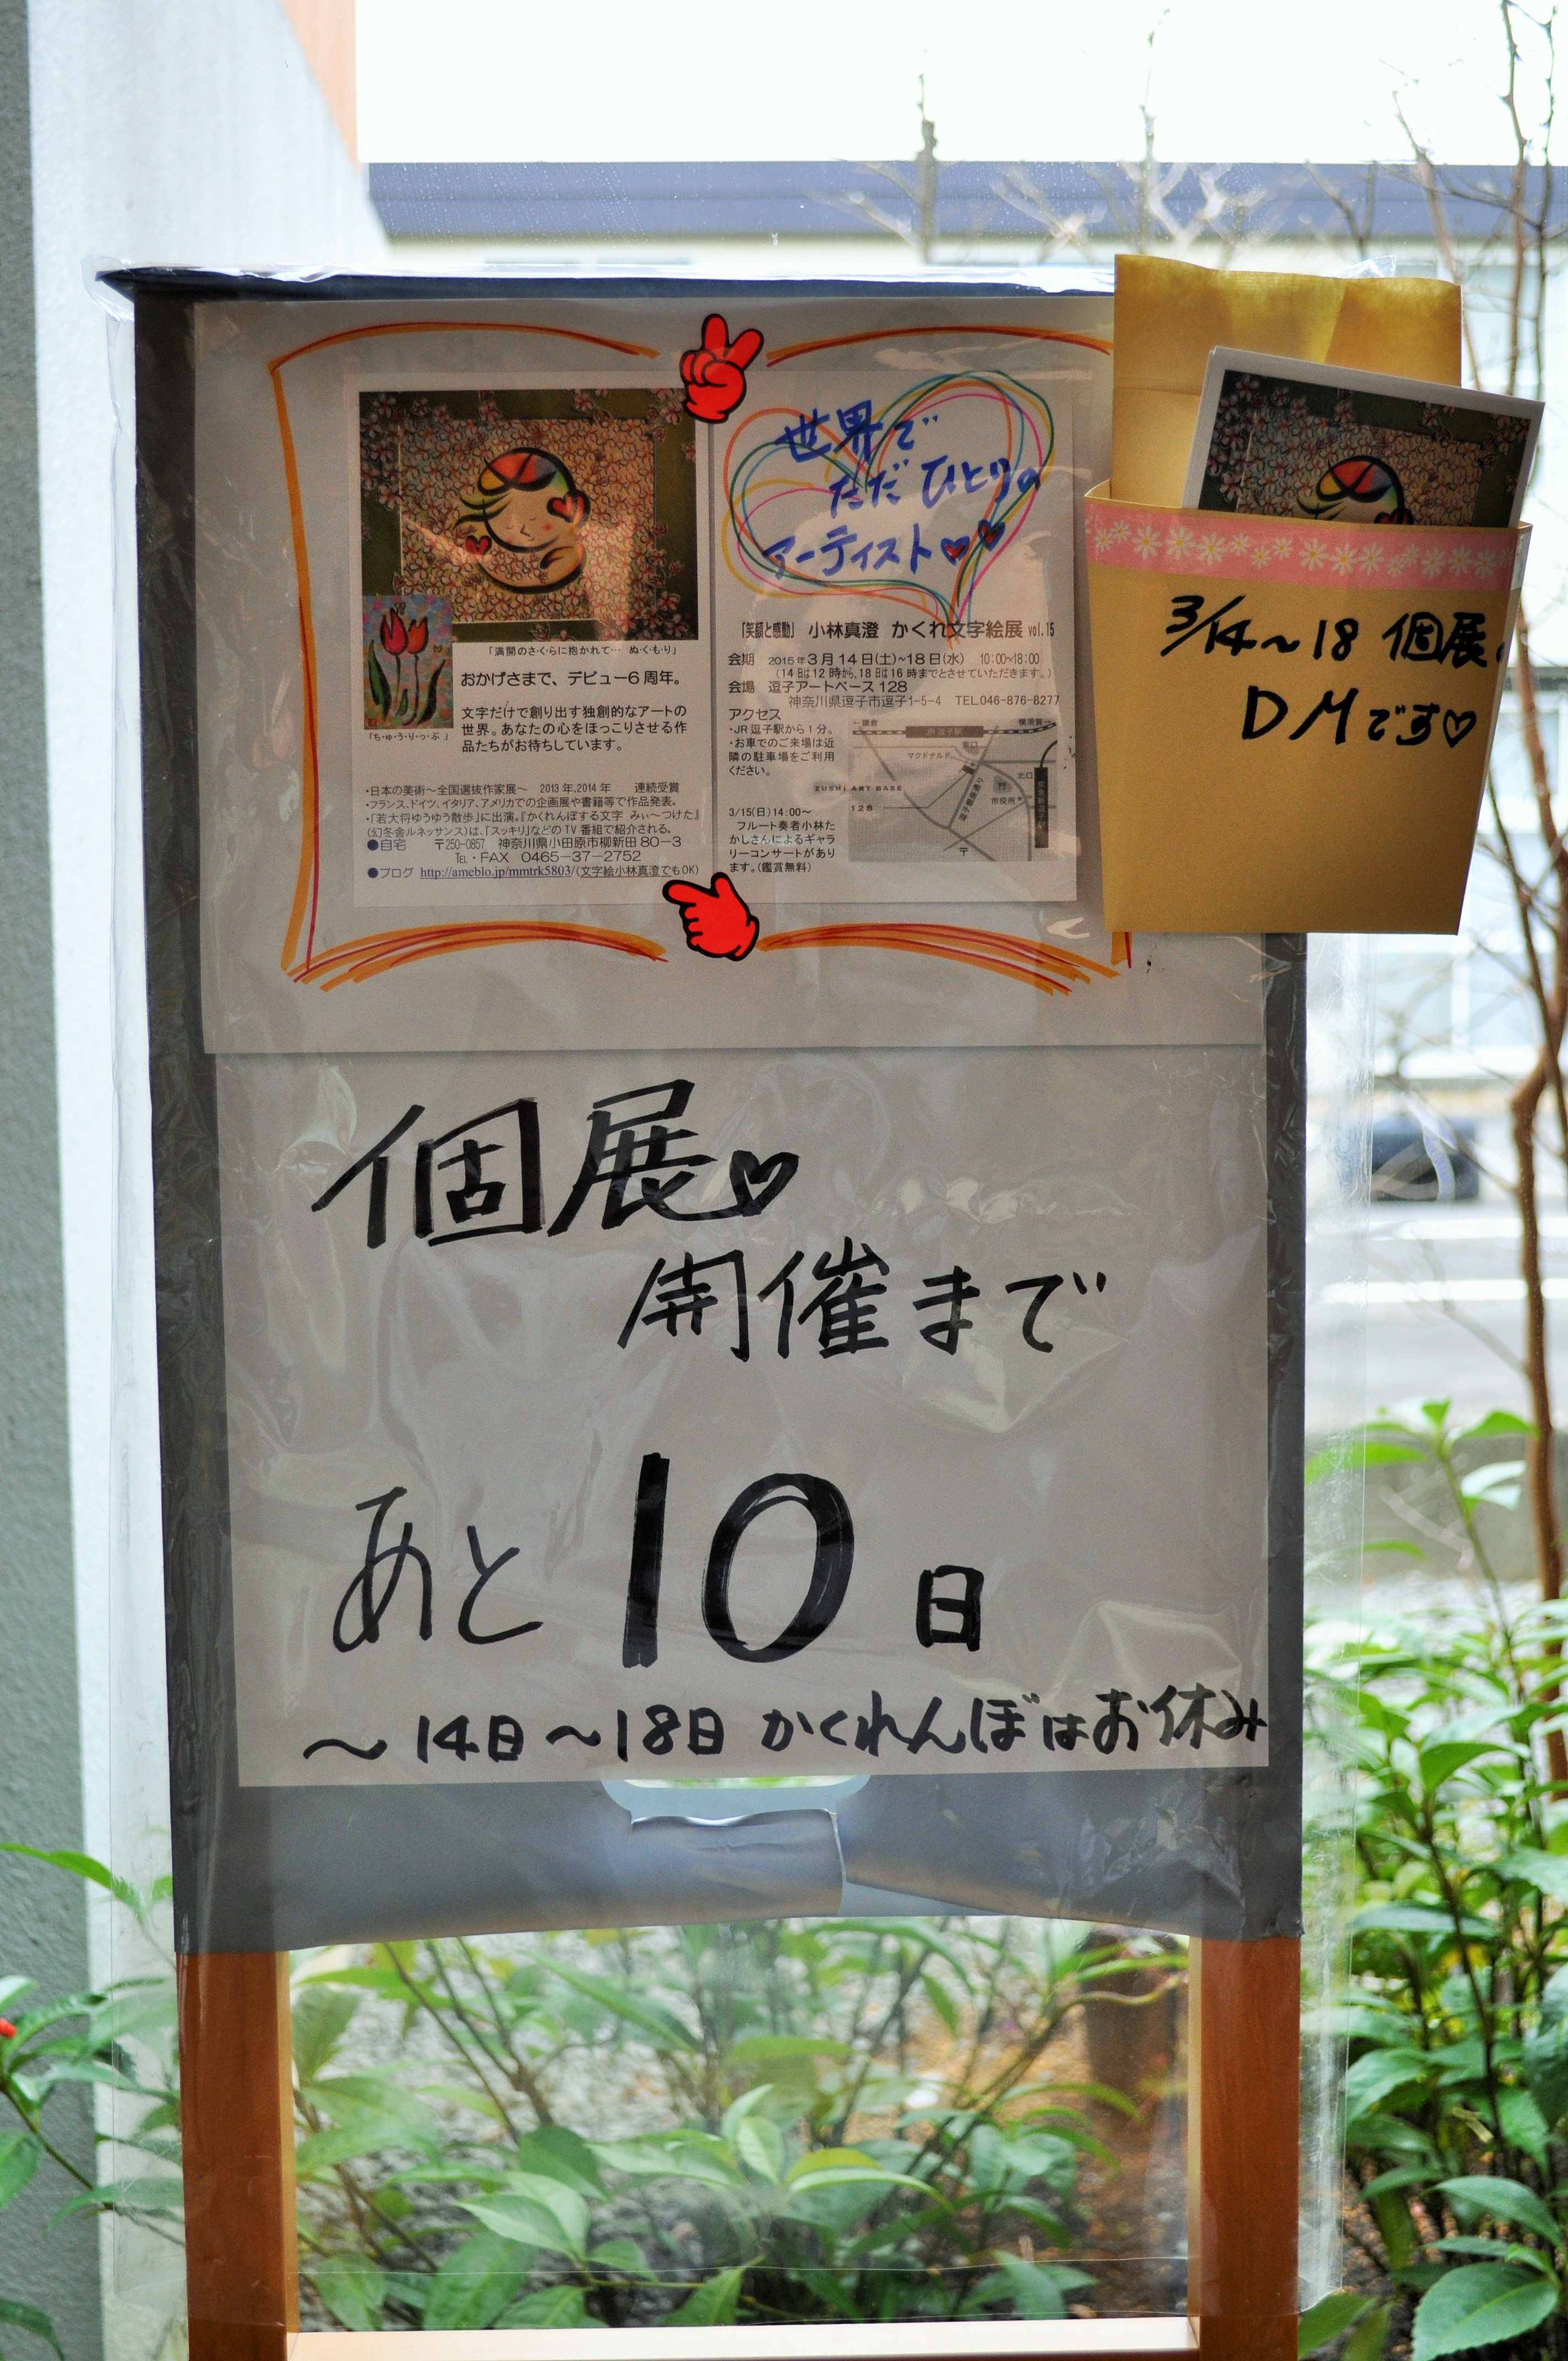 世界で
ただひとりの
アーティスト
「満開のさくらに抱かれて… ぬくもり」
おかげさまで、デビュー6周年。
文字だけで創り出す独創的なアートの
世界。あなたの心をほっこりさせる作
品たちがお待ちしています。
「ち・ゅ・う・り・っ・ぷ」
・日本の美術～全国選抜作家展～ 2013年,2014年 連続受賞
・フランス、ドイツ、イタリア、アメリカでの企画展や書籍等で作品発表。
・「若大将ゆうゆう散歩」に出演。『かくれんぼする文字 みぃ～つけた』
(幻冬舎ルネッサンス)は、「スッキリ」などのTV番組で紹介される。
●自宅 〒250-0857 神奈川県小田原市柳新田80-3
TEL・FAX 0465-37-2752
●ブログ http://ameblo.jp/mmtrk5803/(文字絵小林真澄でもOK)
「笑顔と感動」 小林真澄 かくれ文字絵展 vol.15
会期 2015年3月14日(土)~18日(水) 10:00~18:00
(14日は12時から、18日は16時までとさせていただきます。)
会場 逗子アートベース128
神奈川県逗子市逗子1-5-4 TEL046-876-8277
アクセス
・JR逗子駅から1分。
・お車でのご来場は近
隣の駐車場をご利用
ください。
3/15(日)14:00～
フルート奏者小林た
かしさんによるギャラ
リーコンサートがあり
ます。(鑑賞無料)
←鎌倉
JR逗子駅
横須賀→
東口
マクドナルド
北口
市役所
ZUSHI ART BASE
128
逗子銀座通り
京急新逗子駅
〒
3/14～18 個展
DMです♡
個展♡
開催まで
あと 10 日
～14日～18日 かくれんぼはお休み